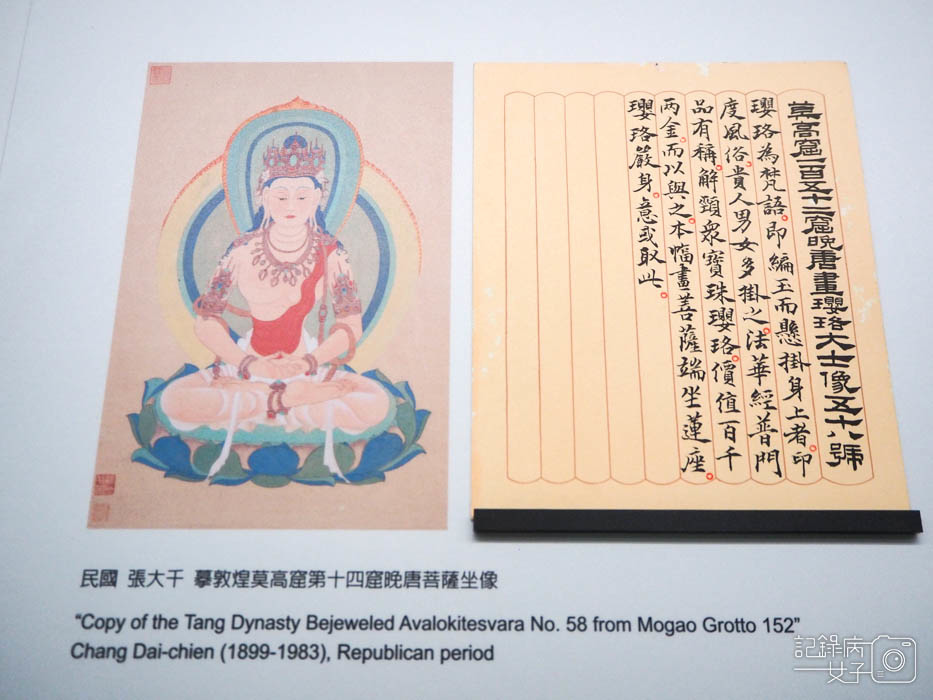 莫高窟一百五十二窟晚唐畫瓔珞大士像五十八號
瓔珞為梵語。即編玉而懸掛身上者。印
度風俗。貴人男女多掛之。法華經普門
品有稱。解頸眾寶珠瓔珞。價值百千
两金。而以與之。本幅畫菩薩端坐蓮座。
瓔珞嚴身。意或取此。
民國 張大千 摹敦煌莫高窟第十四窟晚唐菩薩坐像
"Copy of the Tang Dynasty Bejeweled Avalokitesvara No. 58 from Mogao Grotto 152"
Chang Dai-chien (1899-1983), Republican period
記錄病
女子